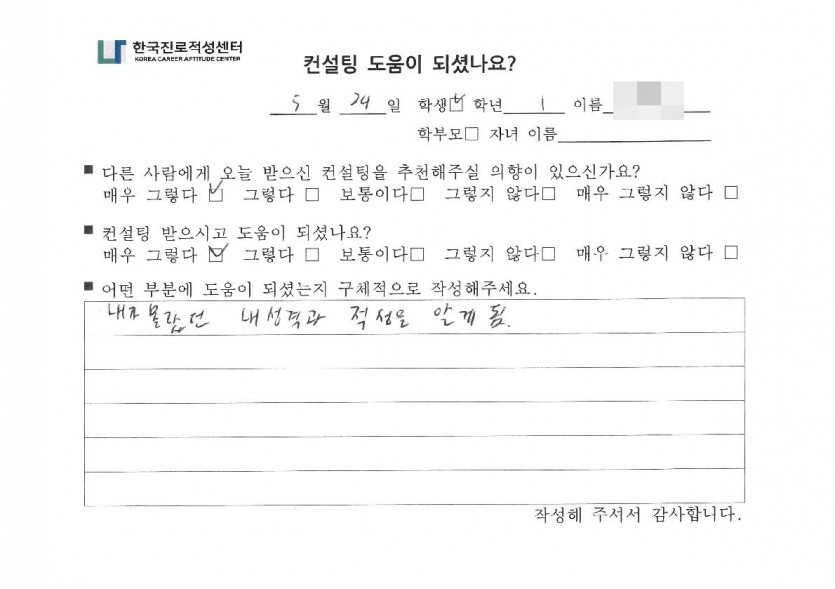 한국진로적성센터
KOREA CAREER APTITUDE CENTER
컨설팅 도움이 되셨나요?
5 월 24 일 학생☑ 학년 1 이름
학부모□ 자녀 이름
■ 다른 사람에게 오늘 받으신 컨설팅을 추천해주실 의향이 있으신가요?
매우 그렇다 ☑ 그렇다 □ 보통이다□ 그렇지 않다□ 매우 그렇지 않다 □
■ 컨설팅 받으시고 도움이 되셨나요?
매우 그렇다 ☑ 그렇다 □ 보통이다□ 그렇지 않다□ 매우 그렇지 않다 □
■ 어떤 부분에 도움이 되셨는지 구체적으로 작성해주세요.
내가 몰랐던 내 성격과 적성을 알게 됨.
작성해 주셔서 감사합니다.